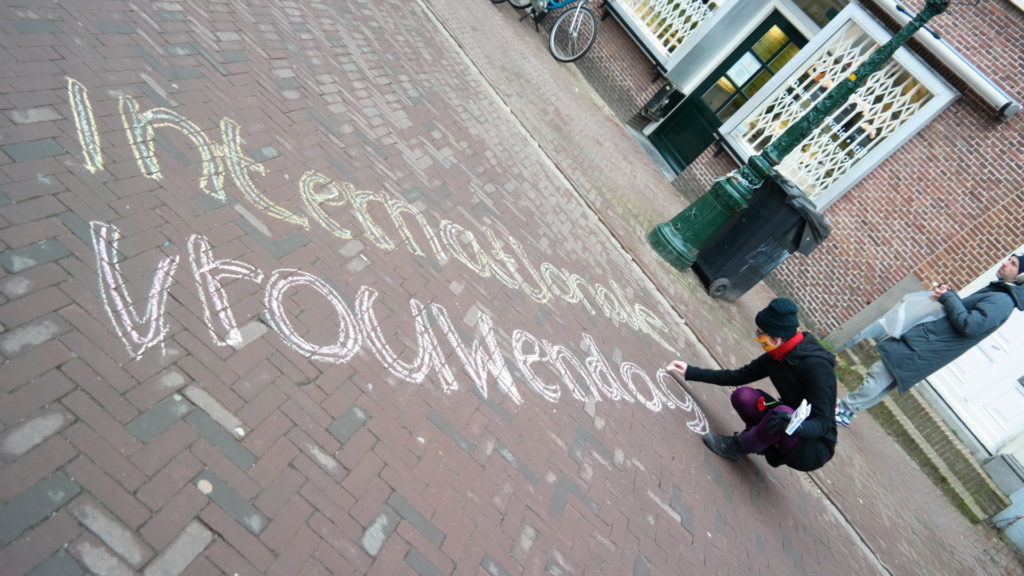 Internationale
Vrouwendag